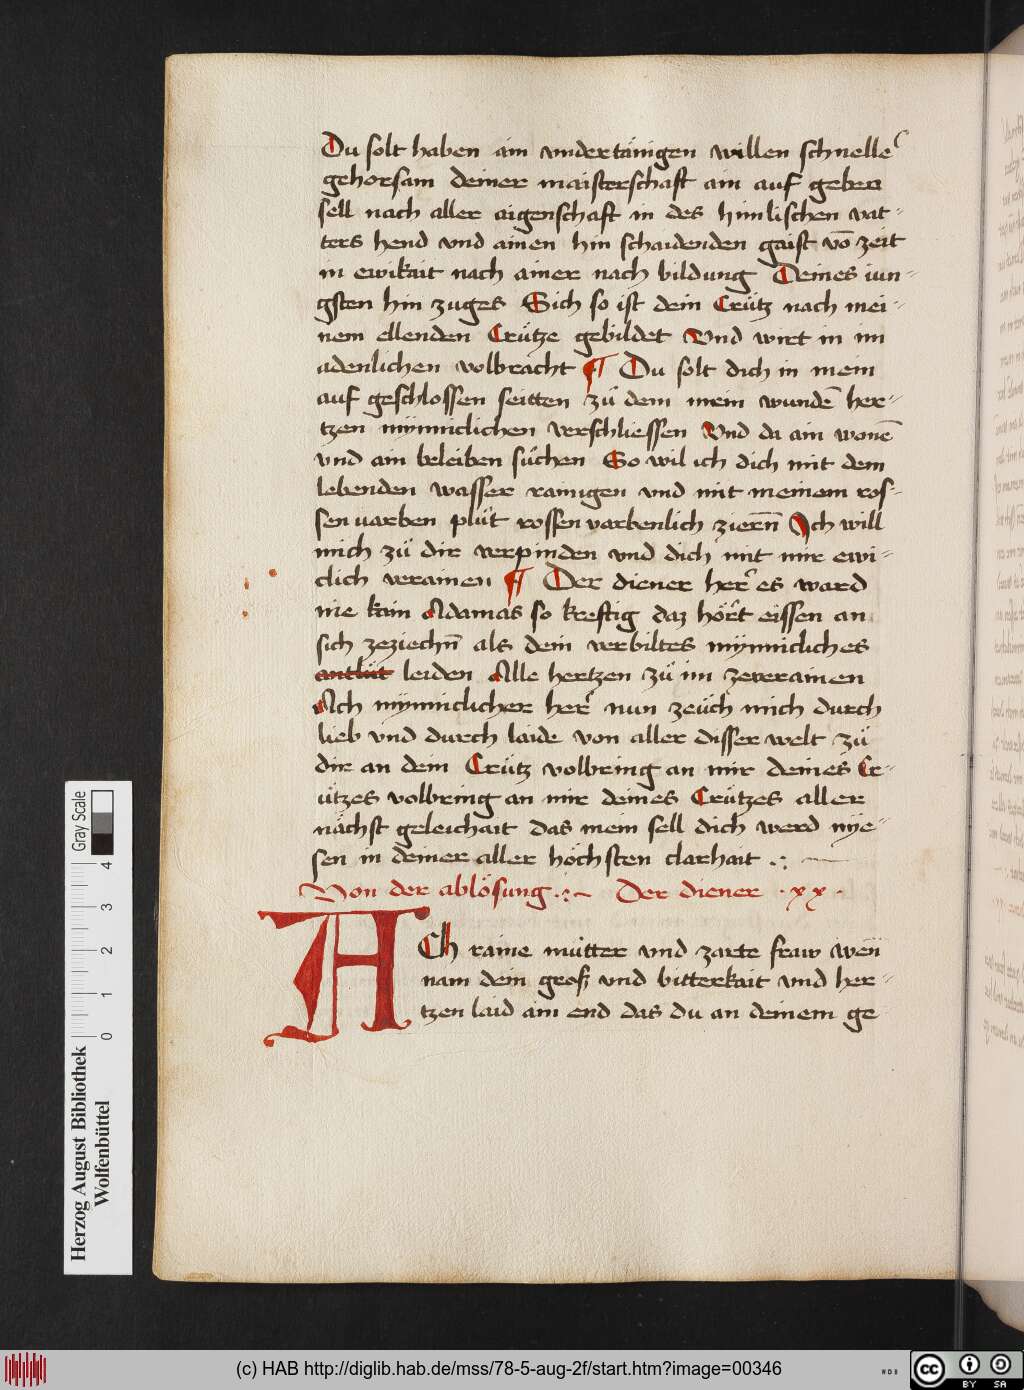 Du solt haben ain vndertänigen willen schnelle
gehorsam deiner maisterschaft ain auf geben
sell nach aller aigenschaft in des himlischen vat-
ters hend vnd ainen hin schaidenden gaist vō zeit
in ewikait nach ainer nach bildung Deines iun-
gsten hin zuges Sich so ist dein Crütz nach mei-
nem ellenden Crütze gebildet Vnd wirt in im
adenlichen volbracht ¶ Du solt dich in mein
auf geschlossen seitten zů dem meim wundē her-
tzen mÿnniclichen verschliessen Vnd da ain wonē
vnd ain beleiben sůchen So wil ich dich mit dem
lebenden wasser rainigen vnd mit meinem ros-
sen uarben plůt rossen varbenlich ziern̄ Ich will
mich zů dir verpinden vnd dich mit mir ewi-
clich verainen ¶ Der diener her es ward
nie kain Adamas so kreftig daz hört eissen an
sich zeziechn̄ als dein verbiltes mÿnnicliches
antlüt leiden Alle hertzen zů im zeverainen
Ach mÿnniclicher her nun zeüch mich durch
lieb vnd durch laide von aller disser welt zů
dir an dem Crütz volbring an mir deines Cr-
ützes volbring an mir deines Crützes aller
nächst geleichait das mein sell dich werd nÿe-
sen in deiner aller höchsten clarhait
Von der ablösung Der diener · xx ·
ACh raine můtter vnd zarte fraw wen̄
nam dein groß vnd bitterkait vnd her-
tzen laid ain end das du an deinem ge-
Gray Scale
4 3 2 1 0
Herzog August Bibliothek
Wolfenbüttel
(c) HAB http://diglib.hab.de/mss/78-5-aug-2f/start.htm?image=00346
WDB
cc BY SA